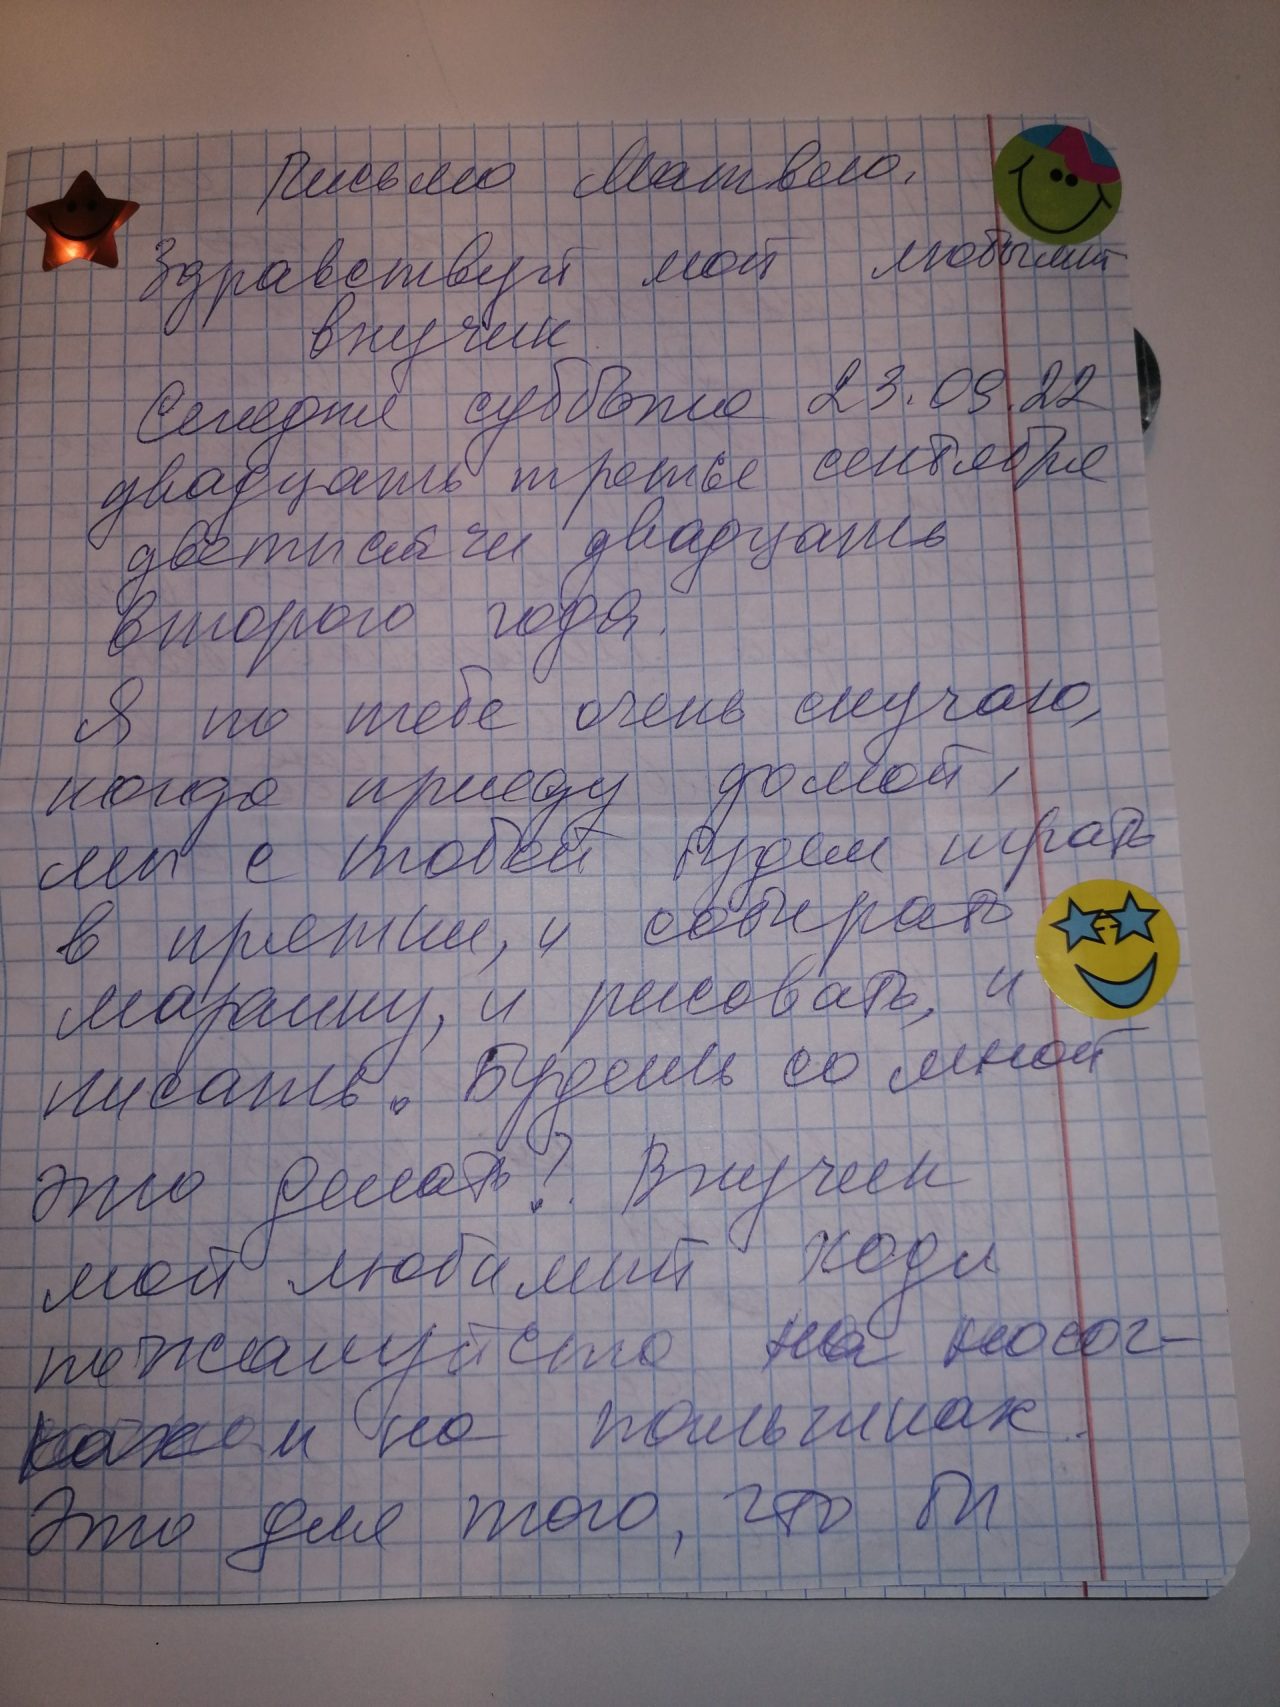 Письмо Матвею.
Здравствуй мой любымий
внучик
Сегодня суббота 23.09.22
двадцать третье сентября
дветысячи двадцать
второго года.
Я по тебе очень скучаю,
когда приеду домой,
мы с тобой будем играть
в прятки, и собирать
марашку, и рисовать, и
писать. Будешь со мной
это делать? Внучик
мой любимий ходи
пожалуйсто на носоч-
ках и на пальчиках.
Это для того, что бы